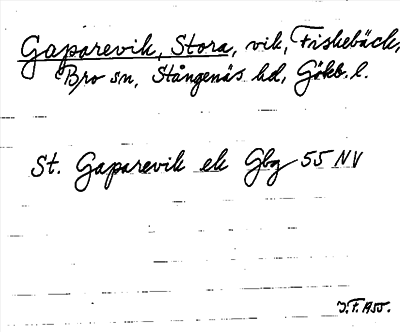 Gaparevik, Stora, vik, Fiskebäck,
Bro sn, Stångenäs hd, Gökb. l.
St. Gaparevik ek Gbg 55 NV